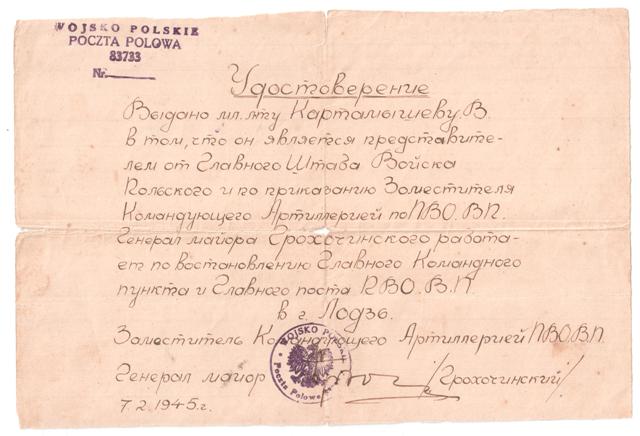 WOJSKO POLSKIE
POCZTA POLOWA
83733
Nr.
Удостоверение
Выдано мл. л-ту Картамышеву. В.
в том, что он является представите-
лем от Главного Штаба Войска
Польского и по приказанию Заместителя
Командующего Артиллерией по ПВО. В.П.
Генерал майора Грохочинского работа-
ет по востановлению Главного Командного
пункта и Главного поста ПВО. В.П
в г. Лодзь.
Заместитель Командующего Артиллерией ПВО. В.П.
WOJSKO POLSKIE
Poczta Polowa
Генерал майор /Грохочинский/
7.2.1945 г.